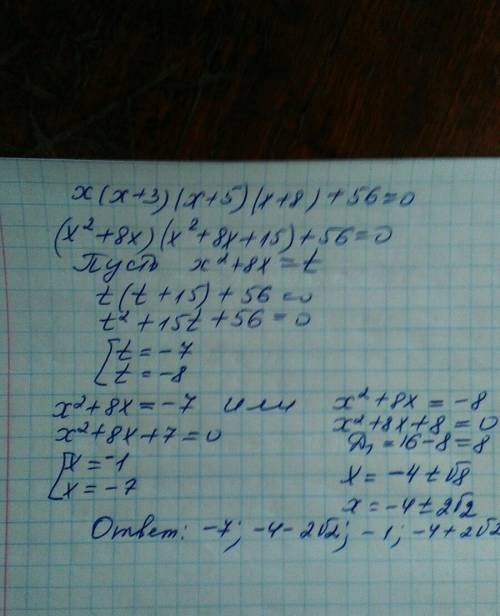 x(x+3)(x+5)(x+8)+56=0
(x²+8x)(x²+8x+15)+56=0
Пусть x²+8x=t
t(t+15)+56=0
t²+15t+56=0
[t=-7
[t=-8
x²+8x=-7 или x²+8x=-8
x²+8x+7=0 x²+8x+8=0
Д₁=16-8=8
[x=-1 x=-4±√8
[x=-7 x=-4±2√2
Ответ: -7; -4-2√2; -1; -4+2√2